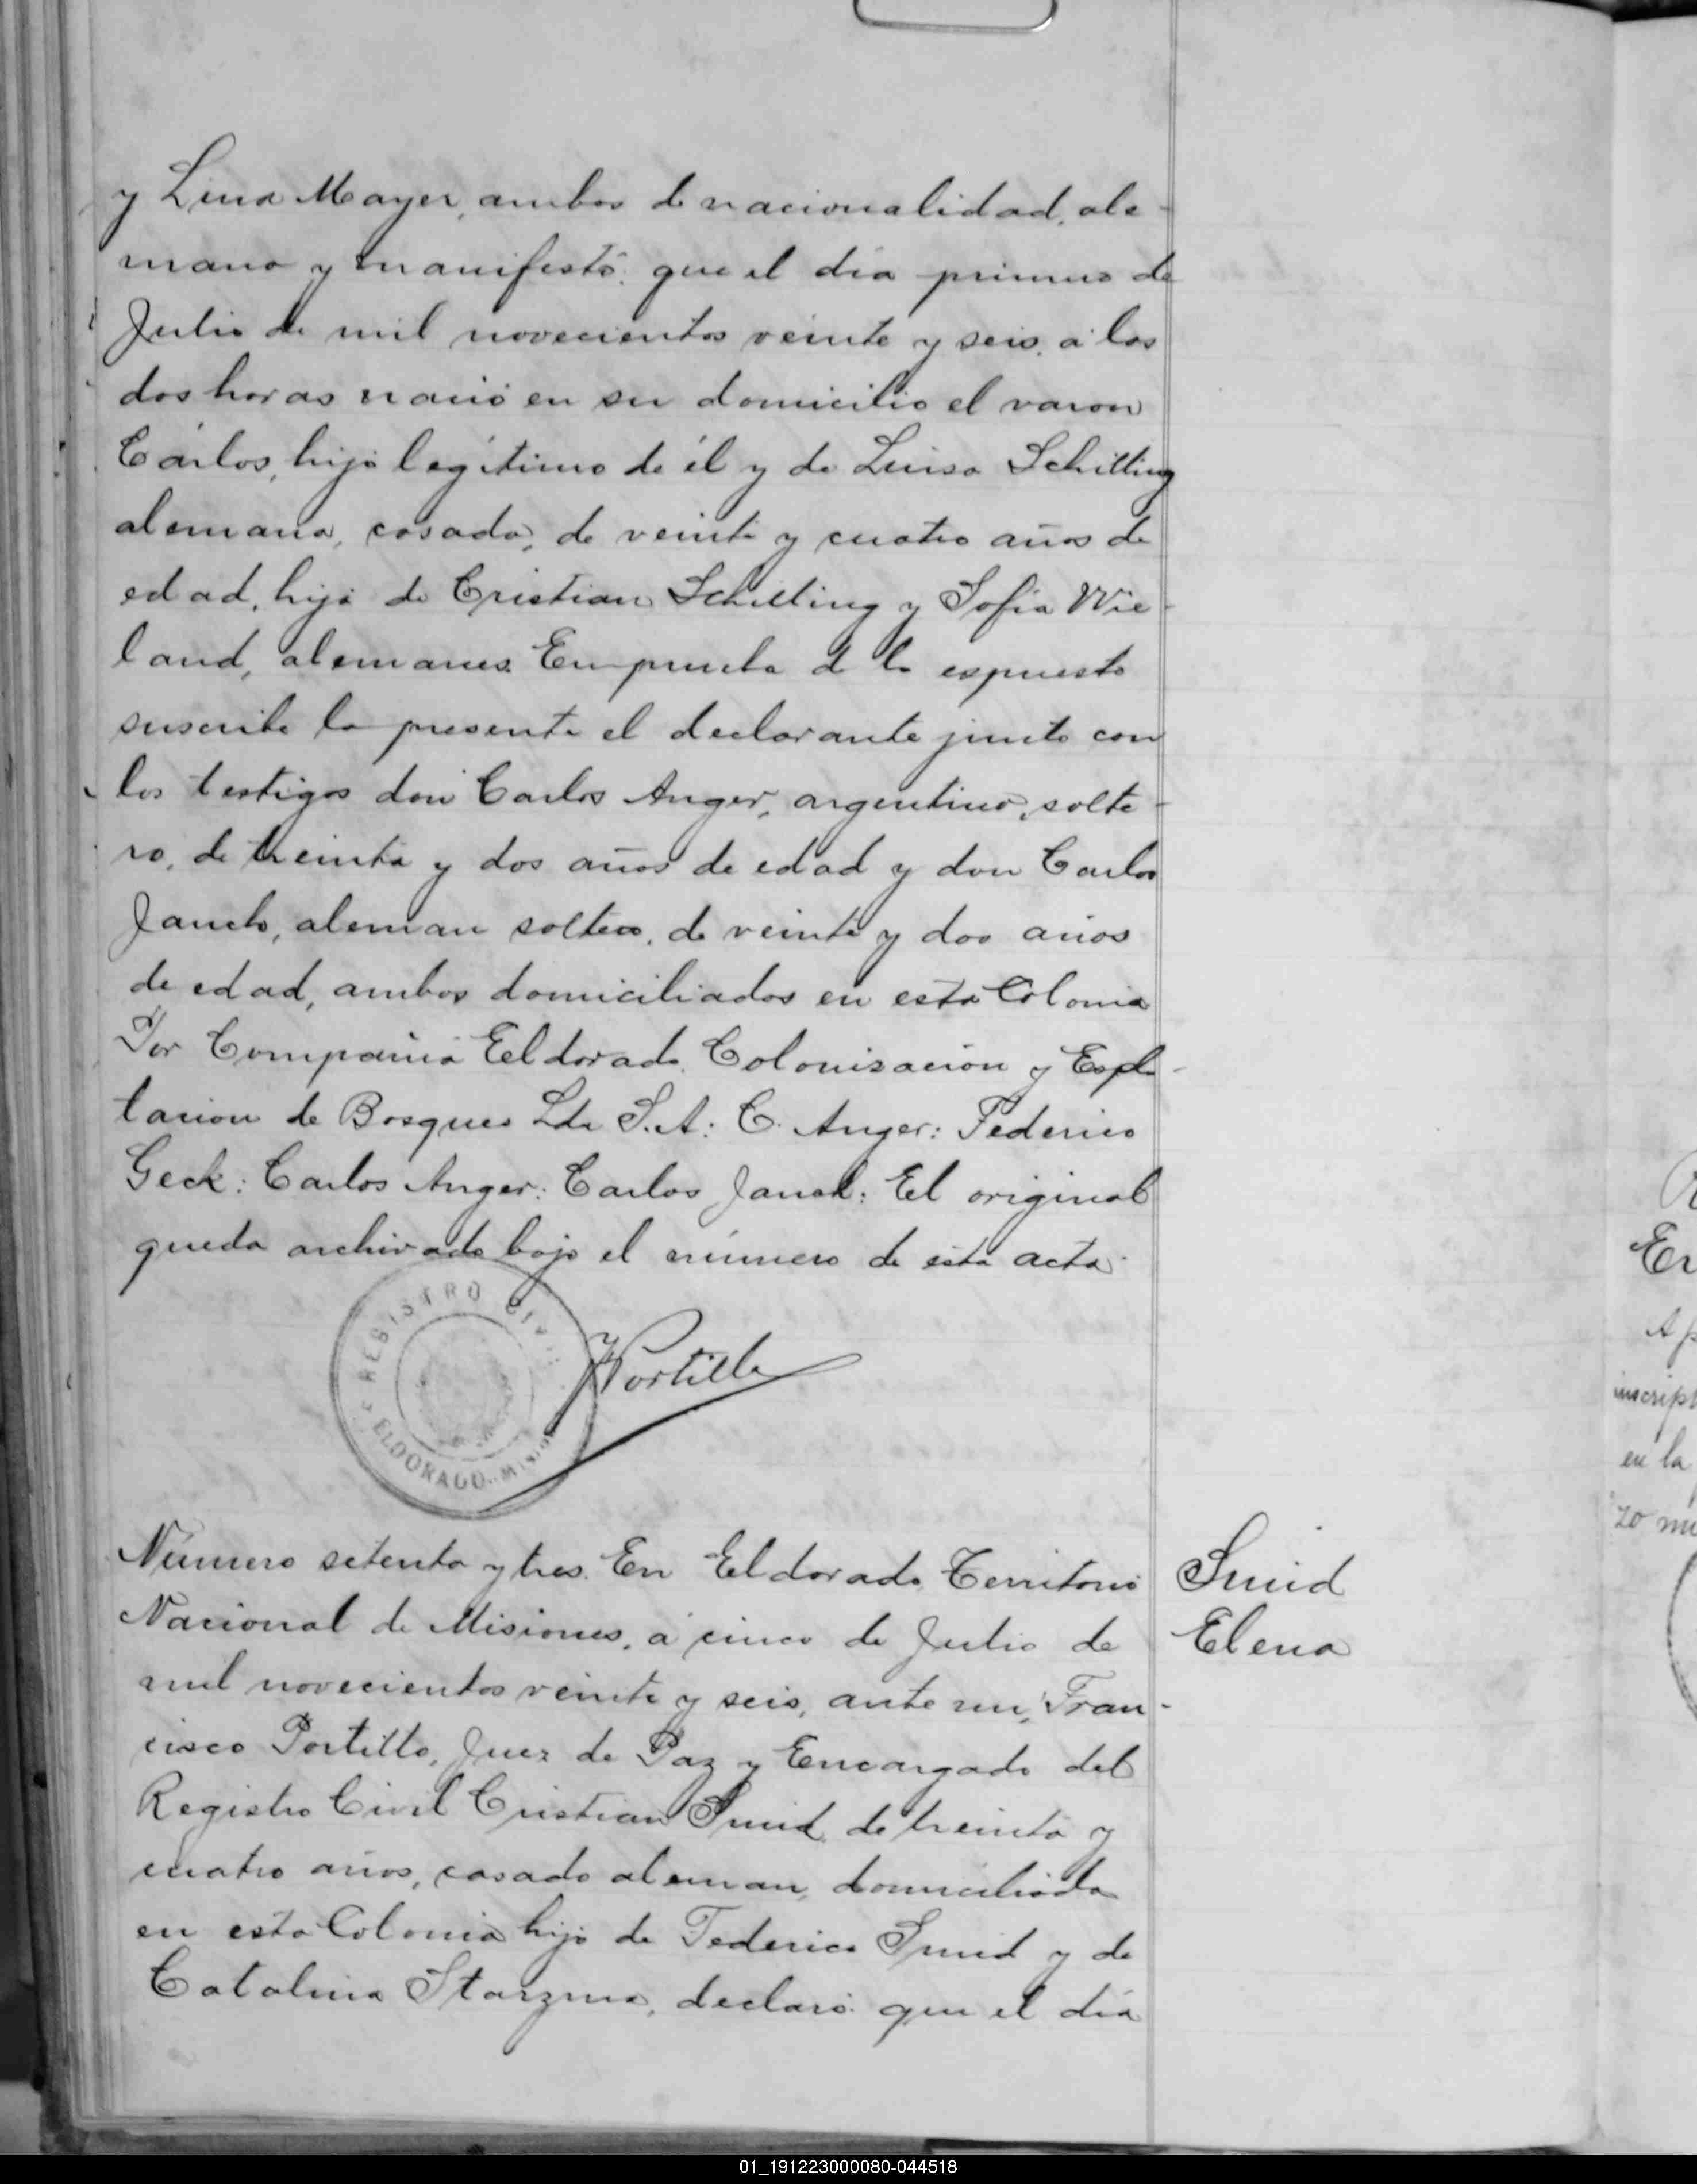 y Lina Mayer, ambos de nacionalidad ale-
mana y manifestó: que el dia primero de
Julio de mil novecientos veinte y seis, a las
dos horas nació en su domicilio el varon
Cárlos, hijo legítimo de él y de Luisa Schilling
alemana, casada, de veinte y cuatro años de
edad, hija de Cristian Schilling y Sofia Wie-
land, alemanes. En prueba de lo espuesto
suscribe la presente el declarante junto con
los testigos don Carlos Anger, argentino, solte-
ro, de treinta y dos años de edad y don Carlos
Janch, aleman soltero, de veinte y dos años
de edad, ambos domiciliados en esta Colonia
Por Compañia Eldorado, Colonisación y Explo-
tacion de Bosques Lda S. A: C. Anger: Federico
Geck: Carlos Anger: Carlos Janch: El original
queda archivado bajo el número de esta acta.
REGISTRO CIVIL
ELDORADO
Portillo
Número setenta y tres. En Eldorado Territorio
Nacional de Misiones, a cinco de Julio de
mil novecientos veinte y seis, ante mi, Fran-
cisco Portillo, Juez de Paz y Encargado del
Registro Civil Cristian Smid, de treinta y
cuatro años, casado aleman, domiciliado
en esta Colonia hijo de Federico Smid y de
Catalina declaró: que el dia
Smid
Elena
Er
inscript
en la